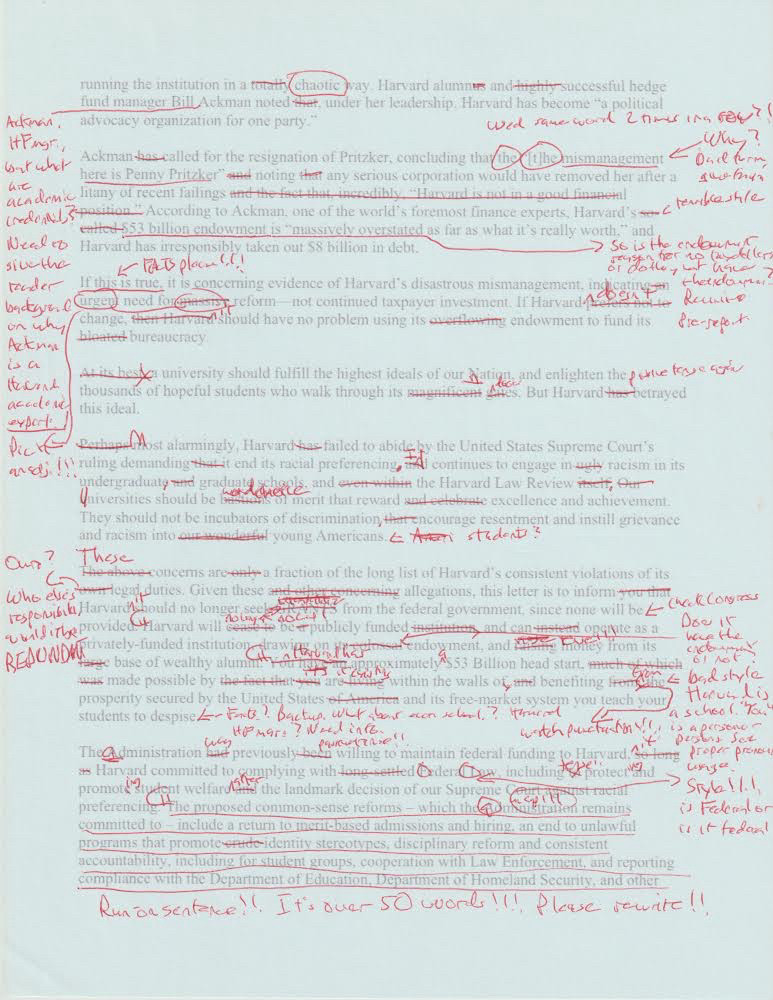 running the institution in a totally chaotic way. Harvard alumnus and highly successful hedge
fund manager Bill Ackman noted that, under her leadership, Harvard has become “a political
advocacy organization for one party.”
Used same word 2 times in a row?!
Ackman,
HF mgr,
but what
are
academic
credentials?
Need to
give the
reader
background
on why
Ackman
is a
Harvard
academic
expert!
Ackman has called for the resignation of Pritzker, concluding that the “[t]he mismanagement
here is Penny Pritzker” and noting that any serious corporation would have removed her after a
litany of recent failings and the fact that, incredibly, “Harvard is not in a good financial
position.” According to Ackman, one of the world’s foremost finance experts, Harvard’s so-
called $53 billion endowment is “massively overstated as far as what it’s really worth,” and
Harvard has irresponsibly taken out $8 billion in debt.
Why?
Bad form,
terrible style
So is the endowment
Rewrite
FACTS please!!!
If this is true, it is concerning evidence of Harvard’s disastrous mismanagement, indicating an
urgent need for massive reform—not continued taxpayer investment. If Harvard prefers not to
doesn't
change, then Harvard should have no problem using its overflowing endowment to fund its
it
bloated bureaucracy.
Pick
an adj!!!
At its best, a university should fulfill the highest ideals of our Nation, and enlighten the
thousands of hopeful students who walk through its magnificent gates. But Harvard has betrayed
this ideal.
passive tense again
Perhaps most alarmingly, Harvard has failed to abide by the United States Supreme Court’s
ruling demanding that it end its racial preferencing, and continues to engage in ugly racism in its
undergraduate and graduate schools, and even within the Harvard Law Review itself. Our
universities should be bastions of merit that reward and celebrate excellence and achievement.
They should not be incubators of discrimination that encourage resentment and instill grievance
and racism into our wonderful young Americans.
students?
Our?
Who else's
responsibility
would it be?
REDUNDANT
These
The above concerns are only a fraction of the long list of Harvard’s consistent violations of its
own legal duties. Given these and other concerning allegations, this letter is to inform you that
Harvard should no longer seek GRANTS from the federal government, since none will be
provided. Harvard will cease to be a publicly funded institution, and can instead operate as a
privately-funded institution, drawing on its colossal endowment, and raising money from its
large base of wealthy alumni. You have an approximately $53 Billion head start, much of which
was made possible by the fact that you are living within the walls of, and benefiting from, the
prosperity secured by the United States of America and its free-market system you teach your
students to despise.
Check Congress
Does it
have the
endowment
or not?
bad style
Harvard is
a school. You
is a person or
persons. See
proper pronoun
usage.
Facts? Backup. What about econ school?
Need info
watch punctuation!!!
The Administration had previously been willing to maintain federal funding to Harvard, so long
as Harvard committed to complying with long-settled Federal Law, including to protect and
promote student welfare and the landmark decision of our Supreme Court against racial
preferencing. The proposed common-sense reforms – which the Administration remains
committed to – include a return to merit-based admissions and hiring, an end to unlawful
programs that promote crude identity stereotypes, disciplinary reform and consistent
accountability, including for student groups, cooperation with Law Enforcement, and reporting
compliance with the Department of Education, Department of Homeland Security, and other
was
passive tense!!
after
Style!!!
is Federal or
is it federal
Run on sentence!!. It's over 50 words!!!. Please rewrite!!